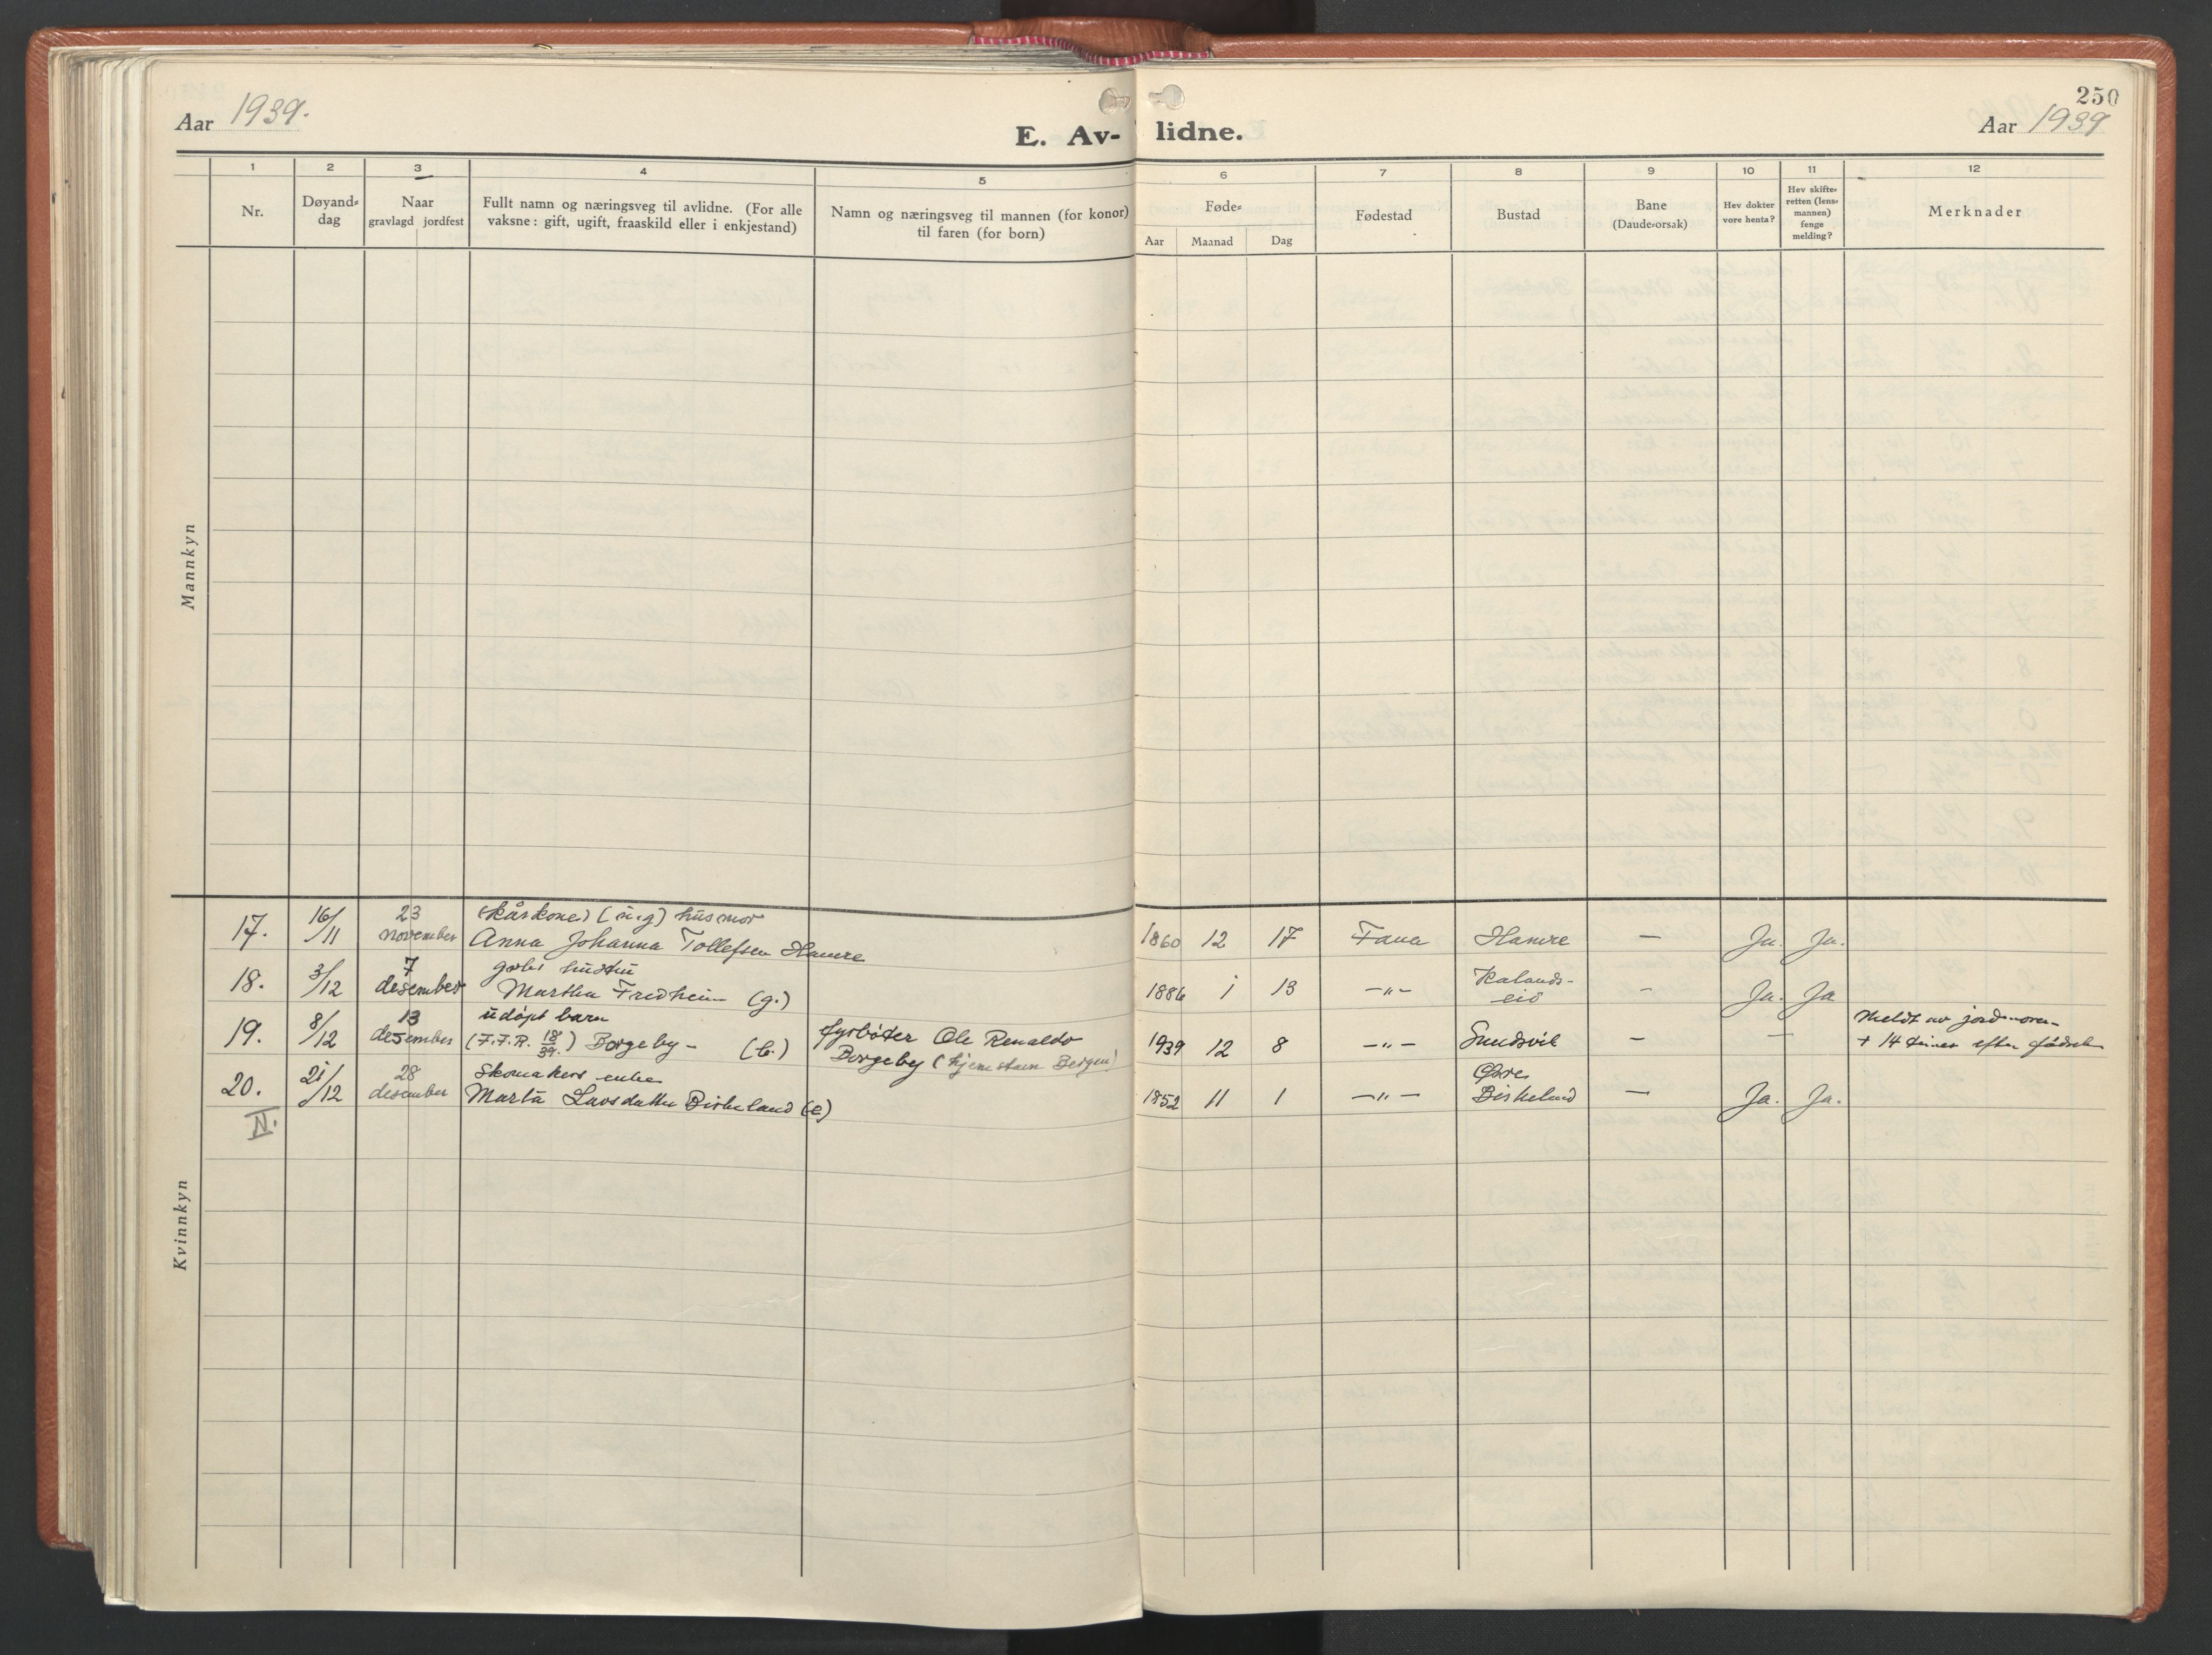 Aar 1939.
E. Av-lidne.
250
Aar 1939
1 2 3 4 5 6 7 8 9 10 11 12
Nr.
Døyand-
dag
Naar
gravlagd jordfest
Fullt namn og næringsveg til avlidne. (For alle
vaksne: gift, ugift, fraaskild eller i enkjestand)
Namn og næringsveg til mannen (for konor)
til faren (for born)
Føde-
Aar Maanad Dag
Fødestad
Bustad
Bane
(Daude-orsak)
Hev dokter
vore henta?
Hev skifte-
retten (lens-
mannen)
fenge
melding?
Merknader
Mannkyn
17. 16/11 23 november (kårkone) (u.g) husmor
Anna Johanna Tollefsen Hamre 1860 12 17 Fana Hamre — Ja. Ja.
18. 3/12 7 desember hustru
Martha Fredheim (g.) 1886 1 13 —"— Kalands-
eid - Ja. Ja
19. 8/12 13 desember udøpt barn
(F.F.R. 18/39.) Borgeby - (b.) fyrbøter Ole Renaldo
Borgeby (hjemstavn Bergen) 1939 12 8 —"— — — Meldt av jordmoren
+ 14 timer efter fødselen
20. 21/12 28 desember Skomakers enke
Marta Larsdatter Birkeland (e) 1852 11 1 —"— Øvre
Birkeland — Ja. Ja.
IV.
Kvinnkyn